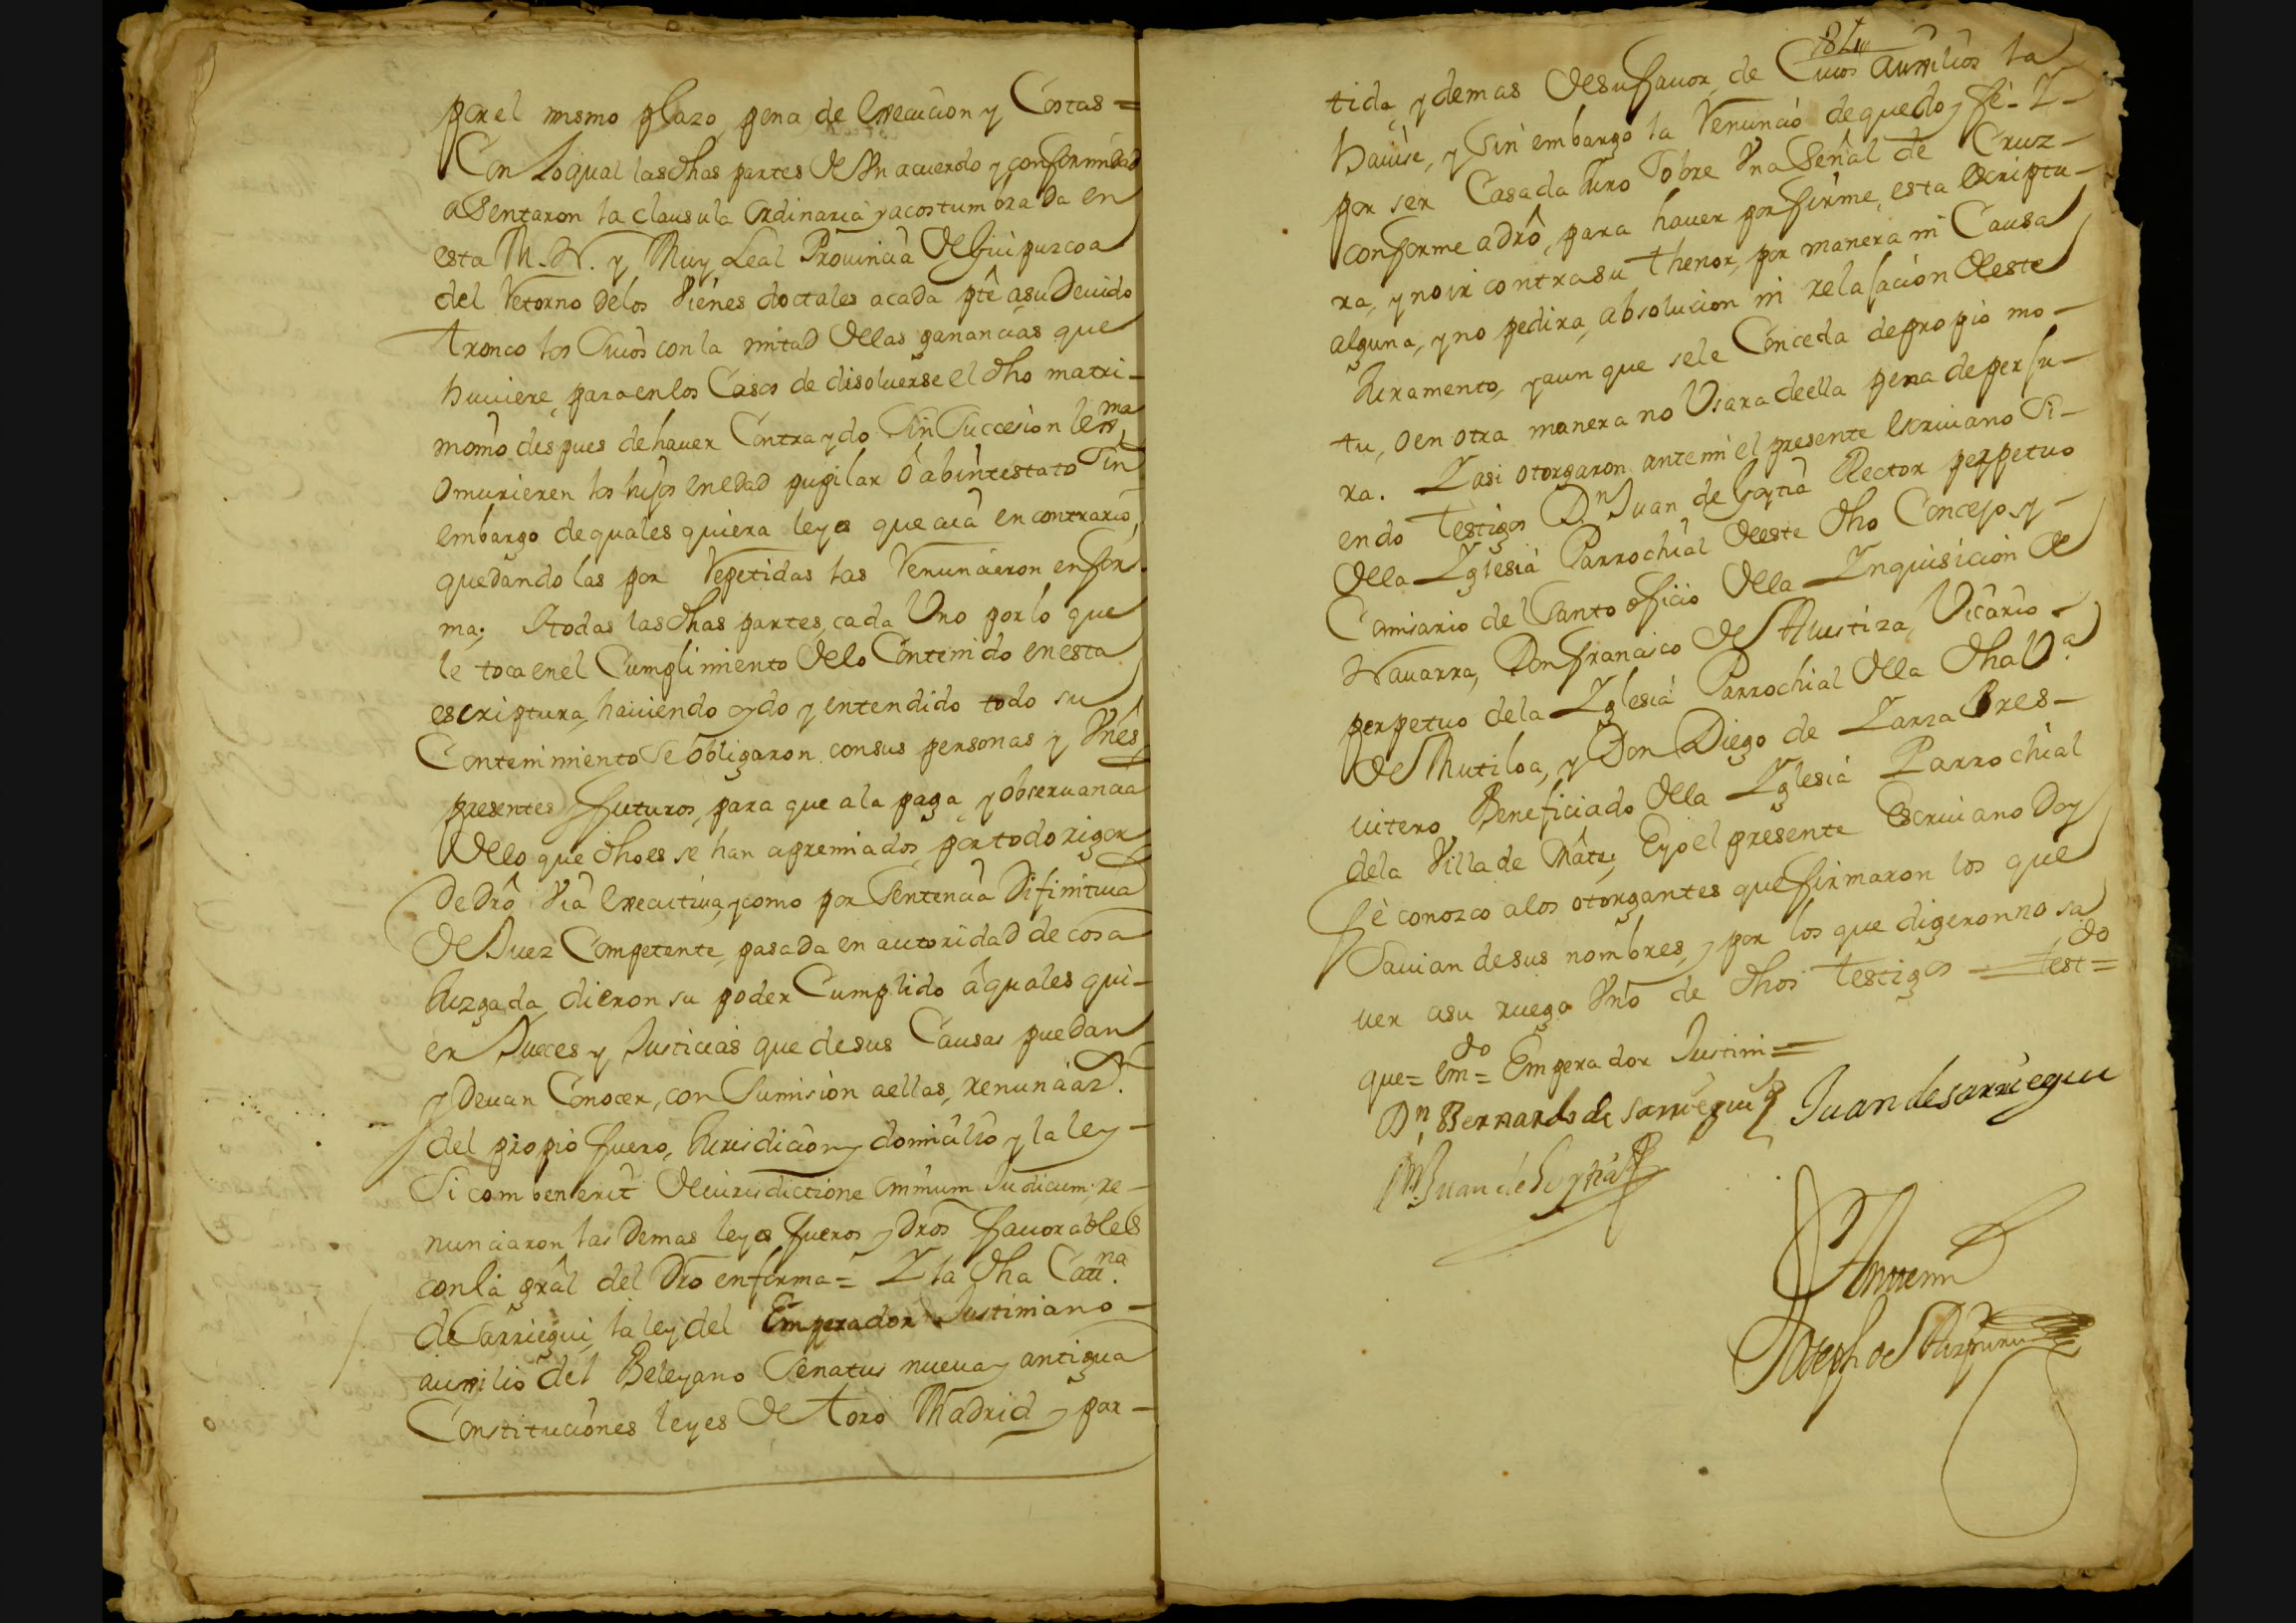 por el mismo plazo, pena de execucion y Costas =
Con lo qual las dhas partes de Vn acuerdo y conformidad
asentaron la clausula ordinaria y acostumbrada en
esta M. N. y Muy Leal Prouincia de Guipuzcoa
del Retorno de los Vienes doctales a cada pte a su deuido
tronco los suios con la mitad de las ganancias que
huuiere, para en los Casos de disoluerse el dho matri-
monio despues de hauer Contraydo sin succesion lexma
o murieren los hijos en edad pupilar ó abintestato sin
embargo de quales quiera leyes que aia en contrario,
quedando las por Repetidas las Renunciaron en for-
ma; Y todas las dhas partes, cada Uno por lo que
le toca en el Cumplimiento de lo Contenido en esta
escriptura, hauiendo oydo y entendido todo su
Contenimiento se obligaron con sus personas y Vnes
presentes y futuros, para que a la paga, y obseruancia
de lo que dho es se han apremiados, por todo rigor
de dro Via executiua, y como por sentencia Difinitiua
de Juez Competente, pasada en autoridad de cosa
Juzgada, dieron su poder Cumplido á quales qui-
er Jueces y Justicias que de sus Causas puedan
y Deuan Conocer, con sumision a ellas, renunciaz.
del propio fuero, Jurisdicion y domicilio y la ley
Si combenerit de iurisdictione omnium Judicum; re-
nunciaron las demas leyes fueros y dros fauorables
con la gral del Dro en forma = Y la dha Catna.
de Sarriegui, la ley del Emperador Justiniano
auxilio del Beleyano Senatus nueua y antigua
Constituciones leyes de Toro Madrid y par-
184
tida, y demas de su fauor, de Cuios auxilios la
hauise, y sin embargo la Renunció de que doy fe - Y
por ser Casada Juro sobre Vna Señal de Cruz
conforme a dro, para hauer por firme, esta escriptu-
ra, y no ir contra su thenor, por manera ni Causa
alguna, y no pedira, absolucion ni relajacion de este
Juramento, y aun que se le Conceda de propio mo-
tu, o en otra manera no Usara de ella pena de perju-
ra. Y asi otorgaron ante mi el presente escriuano si-
endo testigos Dn Juan de Goytia Rector perpetuo
de la Yglesia Parrochial de este dho Concejo, y
Comisario del Santo oficio de la Ynquisicion de
Nauarra, Don Francisco de Austiza, Vicario
perpetuo de la Yglesia Parrochial de la dha Va
de Mutiloa, y Don Diego de Zarza Pres-
uitero Beneficiado de la Yglesia Parrochial
de la Villa de Mâtu, E yo el presente Escriuano Doy
fè conozco a los otorgantes que firmaron los que
sauian de sus nombres, y por los que digeron no sa
uer a su ruego Vno de dhos testigos = testdo =
que = emdo = Emperador Justini =
Dn Bernardo de Sarriegui Juan de sarriegui
Dn Juan de Goytia
Ante mi
Joseph de Aizpuru